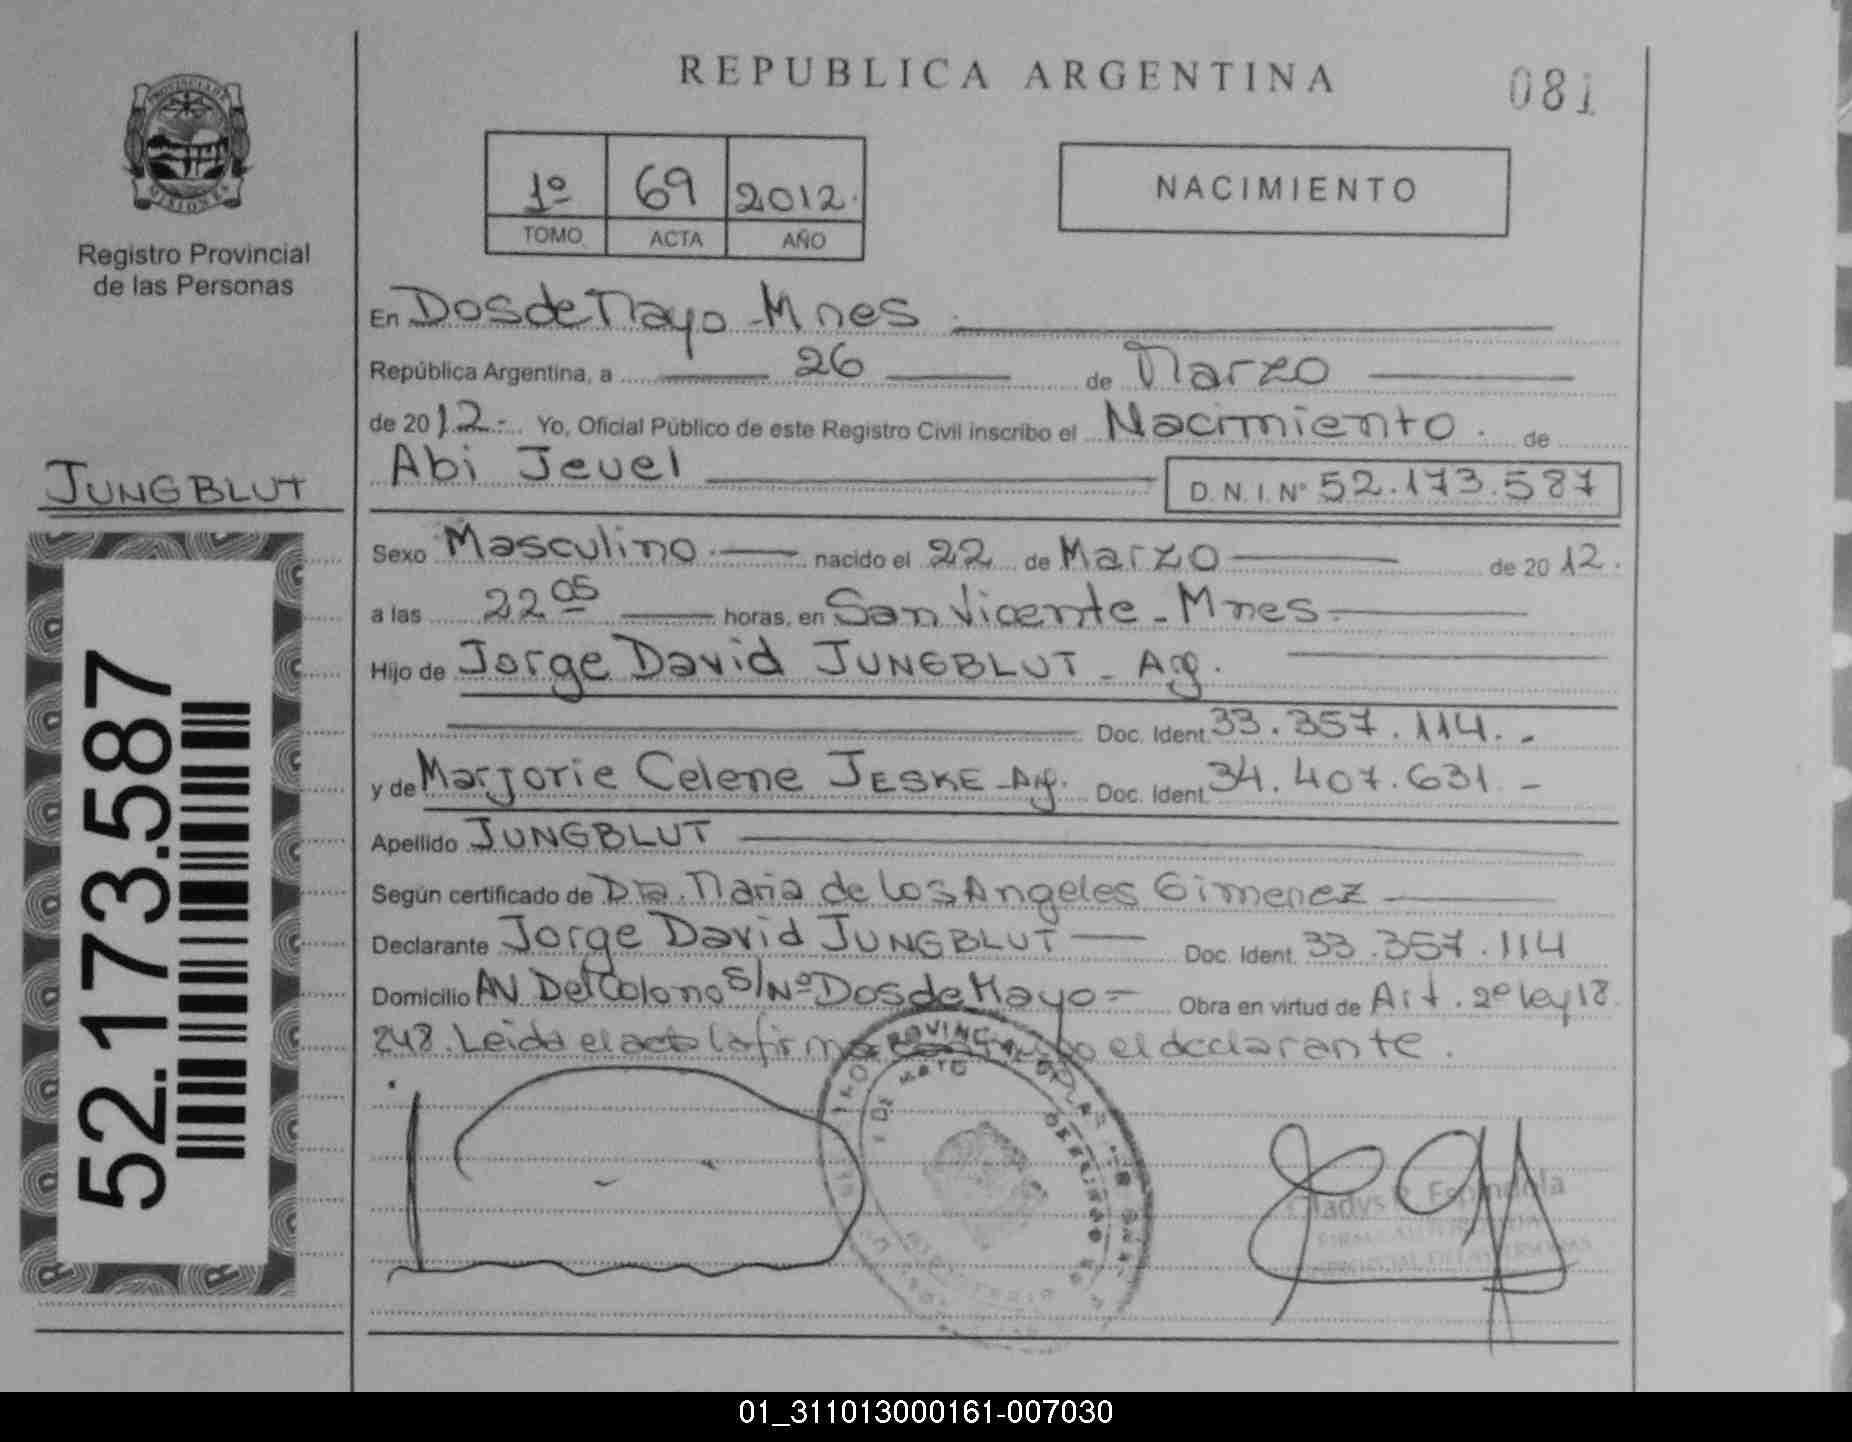 REPUBLICA ARGENTINA
081
PROVINCIA DE
MISIONES
Registro Provincial
de las Personas
1º 69 2012.
TOMO ACTA AÑO
NACIMIENTO
En Dos de Mayo - Mnes
República Argentina, a 26 de Marzo
de 2012.- Yo, Oficial Público de este Registro Civil inscribo el Nacimiento. de
JUNGBLUT
Abi Jeuel D.N.I.Nº 52.173.587
Sexo Masculino. nacido el 22 de Marzo de 2012.
a las 22 05 horas, en San Vicente - Mnes.
Hijo de Jorge David JUNGBLUT - Arg.
Doc. Ident. 33.357.114.-
y de Marjorie Celene JESKE - Arg. Doc. Ident. 34.407.631.-
Apellido JUNGBLUT
Según certificado de Dra. Maria de los Angeles Gimenez
Declarante Jorge David JUNGBLUT Doc. Ident. 33.357.114
Domicilio AV Del Colono S/Nº Dos de Mayo = Obra en virtud de Art. 2º ley 18.
248. Leida el acta la firma el declarante.
52.173.587
Gladys Espindola
01_311013000161-007030